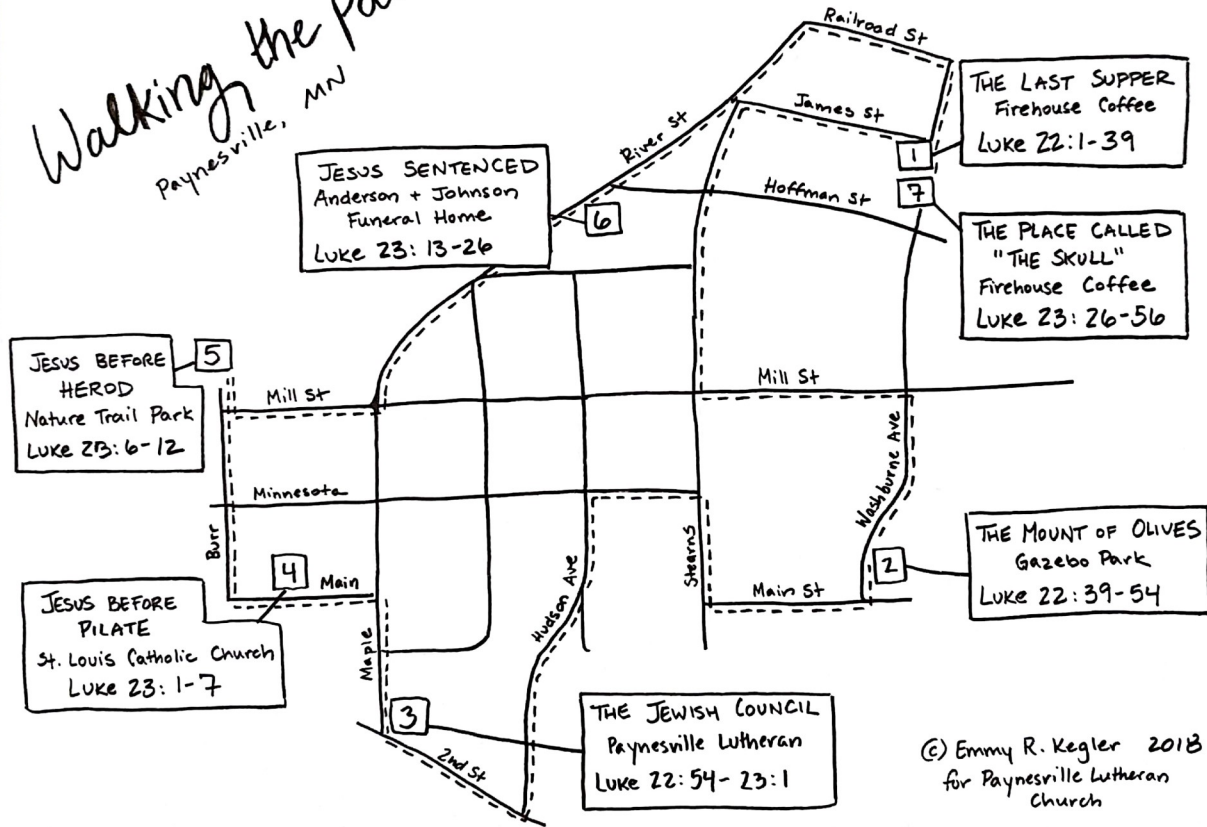 Walking the Pa
Paynesville, MN
Railroad St
James St
River St
Hoffman St
THE LAST SUPPER
Firehouse Coffee
Luke 22:1-39
1
7
THE PLACE CALLED
"THE SKULL"
Firehouse Coffee
Luke 23:26-56
JESUS SENTENCED
Anderson + Johnson
Funeral Home
Luke 23:13-26
6
5
JESUS BEFORE
HEROD
Nature Trail Park
Luke 23:6-12
Mill St
Mill St
Minnesota
Burr
Washburne Ave
Stearns
Hudson Ave
Maple
4
Main
Main St
2
THE MOUNT OF OLIVES
Gazebo Park
Luke 22:39-54
JESUS BEFORE
PILATE
St. Louis Catholic Church
Luke 23:1-7
3
2nd St
THE JEWISH COUNCIL
Paynesville Lutheran
Luke 22:54-23:1
(c) Emmy R. Kegler 2018
for Paynesville Lutheran
Church